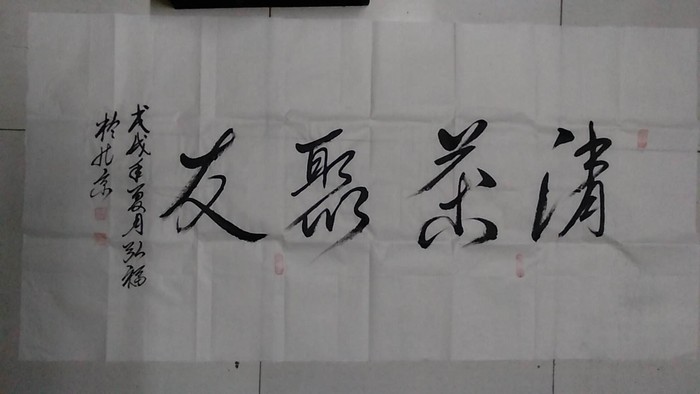 清茶聚友
戊戌年夏月弘福
於北京